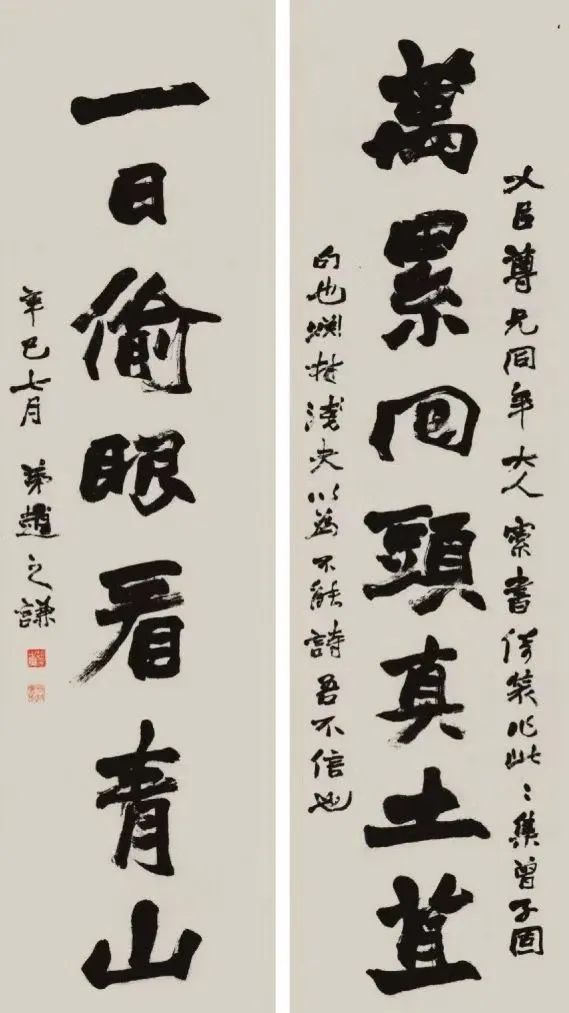 臣尊兄同年大人索書倚裝作此〻集曾子固
萬累回頭真土苴
句也淵材淺夫以為不能詩吾不信也
一日偷眼看青山
辛巳七月 弟趙之謙